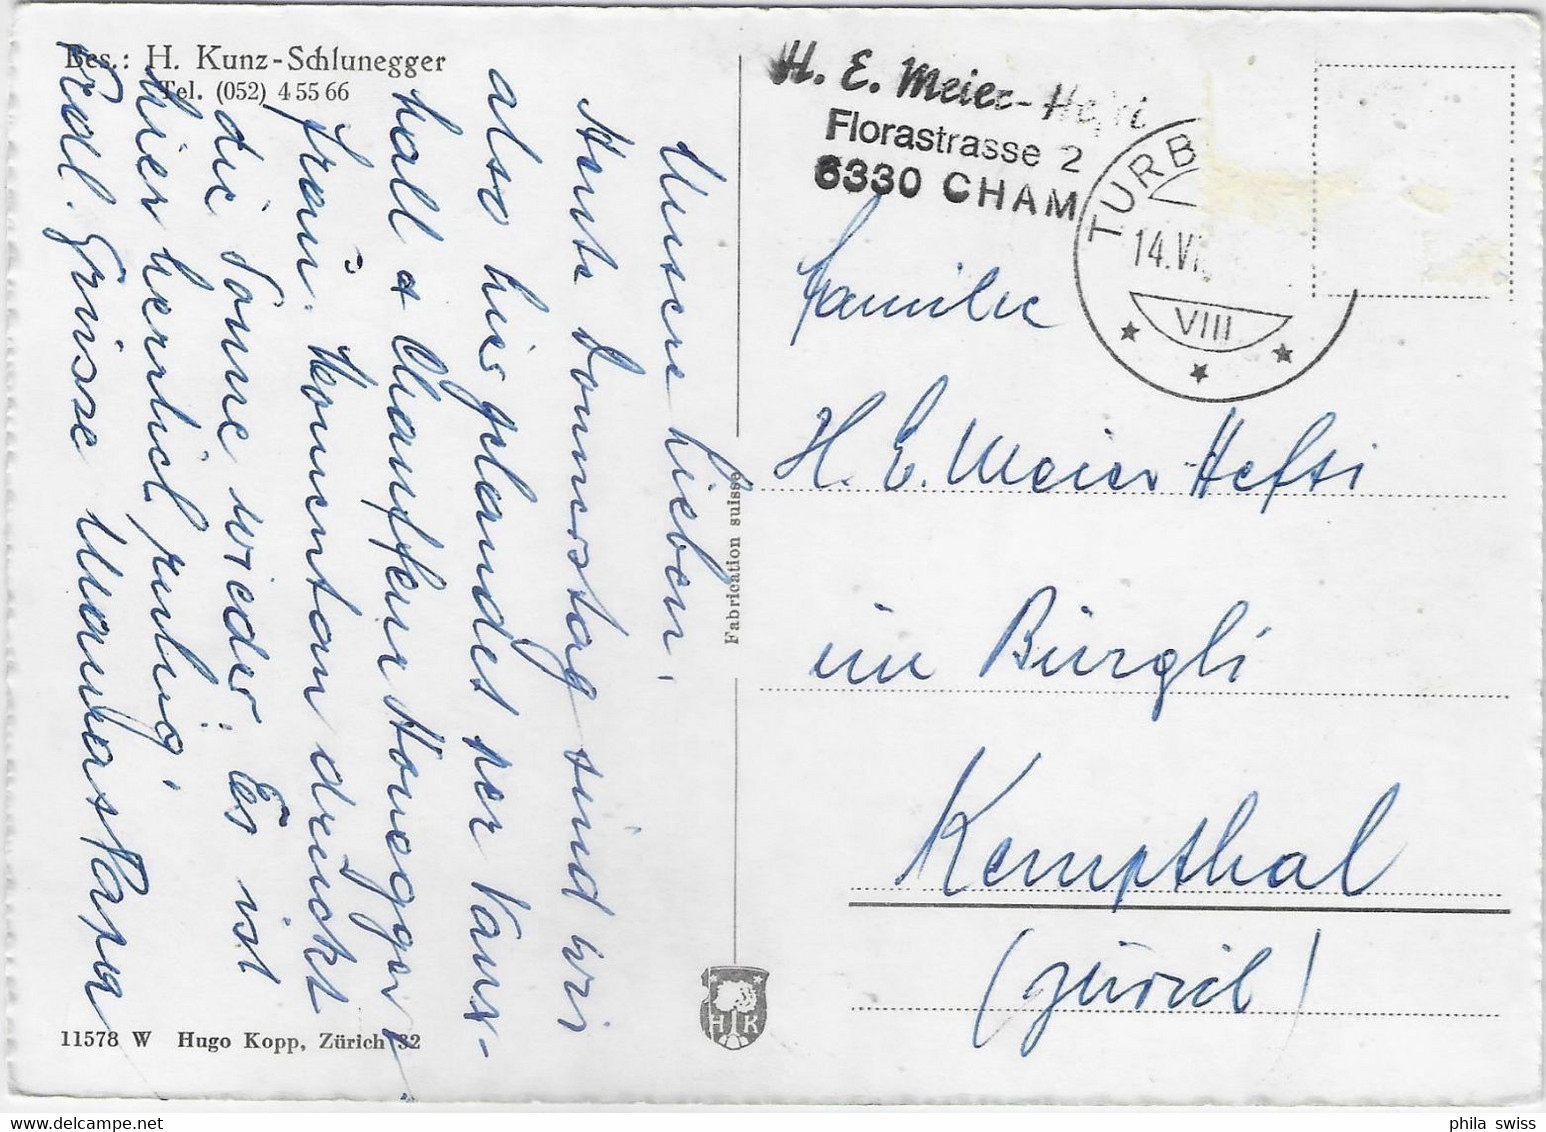 Bes.: H. Kunz-Schlunegger
Tel. (052) 4 55 66
Unsere Lieben,
Heute Donnerstag sind wir
also hier gelandet per Vaux-
hall & Chauffeur Honegger
frau. Momentan drückt
die Sonne wieder. Es ist
hier herrlich ruhig.
Erdl. Grüsse Mama & Papa
11578 W Hugo Kopp, Zürich 32
Fabrication suisse
HK
H. E. Meier-Hefti
Florastrasse 2
6330 CHAM
TURB
14.VI
VIII
Familie
H. E. Meier Hefti
im Bürgli
Kempthal
(Zürich)
phila swiss